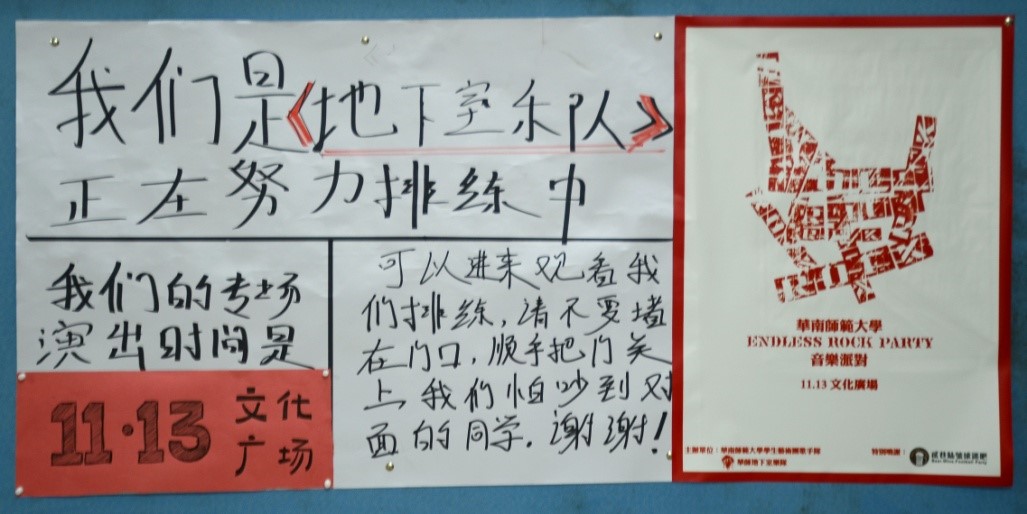 我们是《地下室乐队》
正在努力排练中
我们的专场
演出时间是
11·13
文化
广场
可以进来观看我
们排练，请不要堵
在门口，顺手把门关
上，我们怕吵到对
面的同学，谢谢！
華南師範大學
ENDLESS ROCK PARTY
音樂派對
11.13 文化廣場
主辦單位：華南師範大學學生藝術團歌手隊
華師地下室樂隊
特別鳴謝：